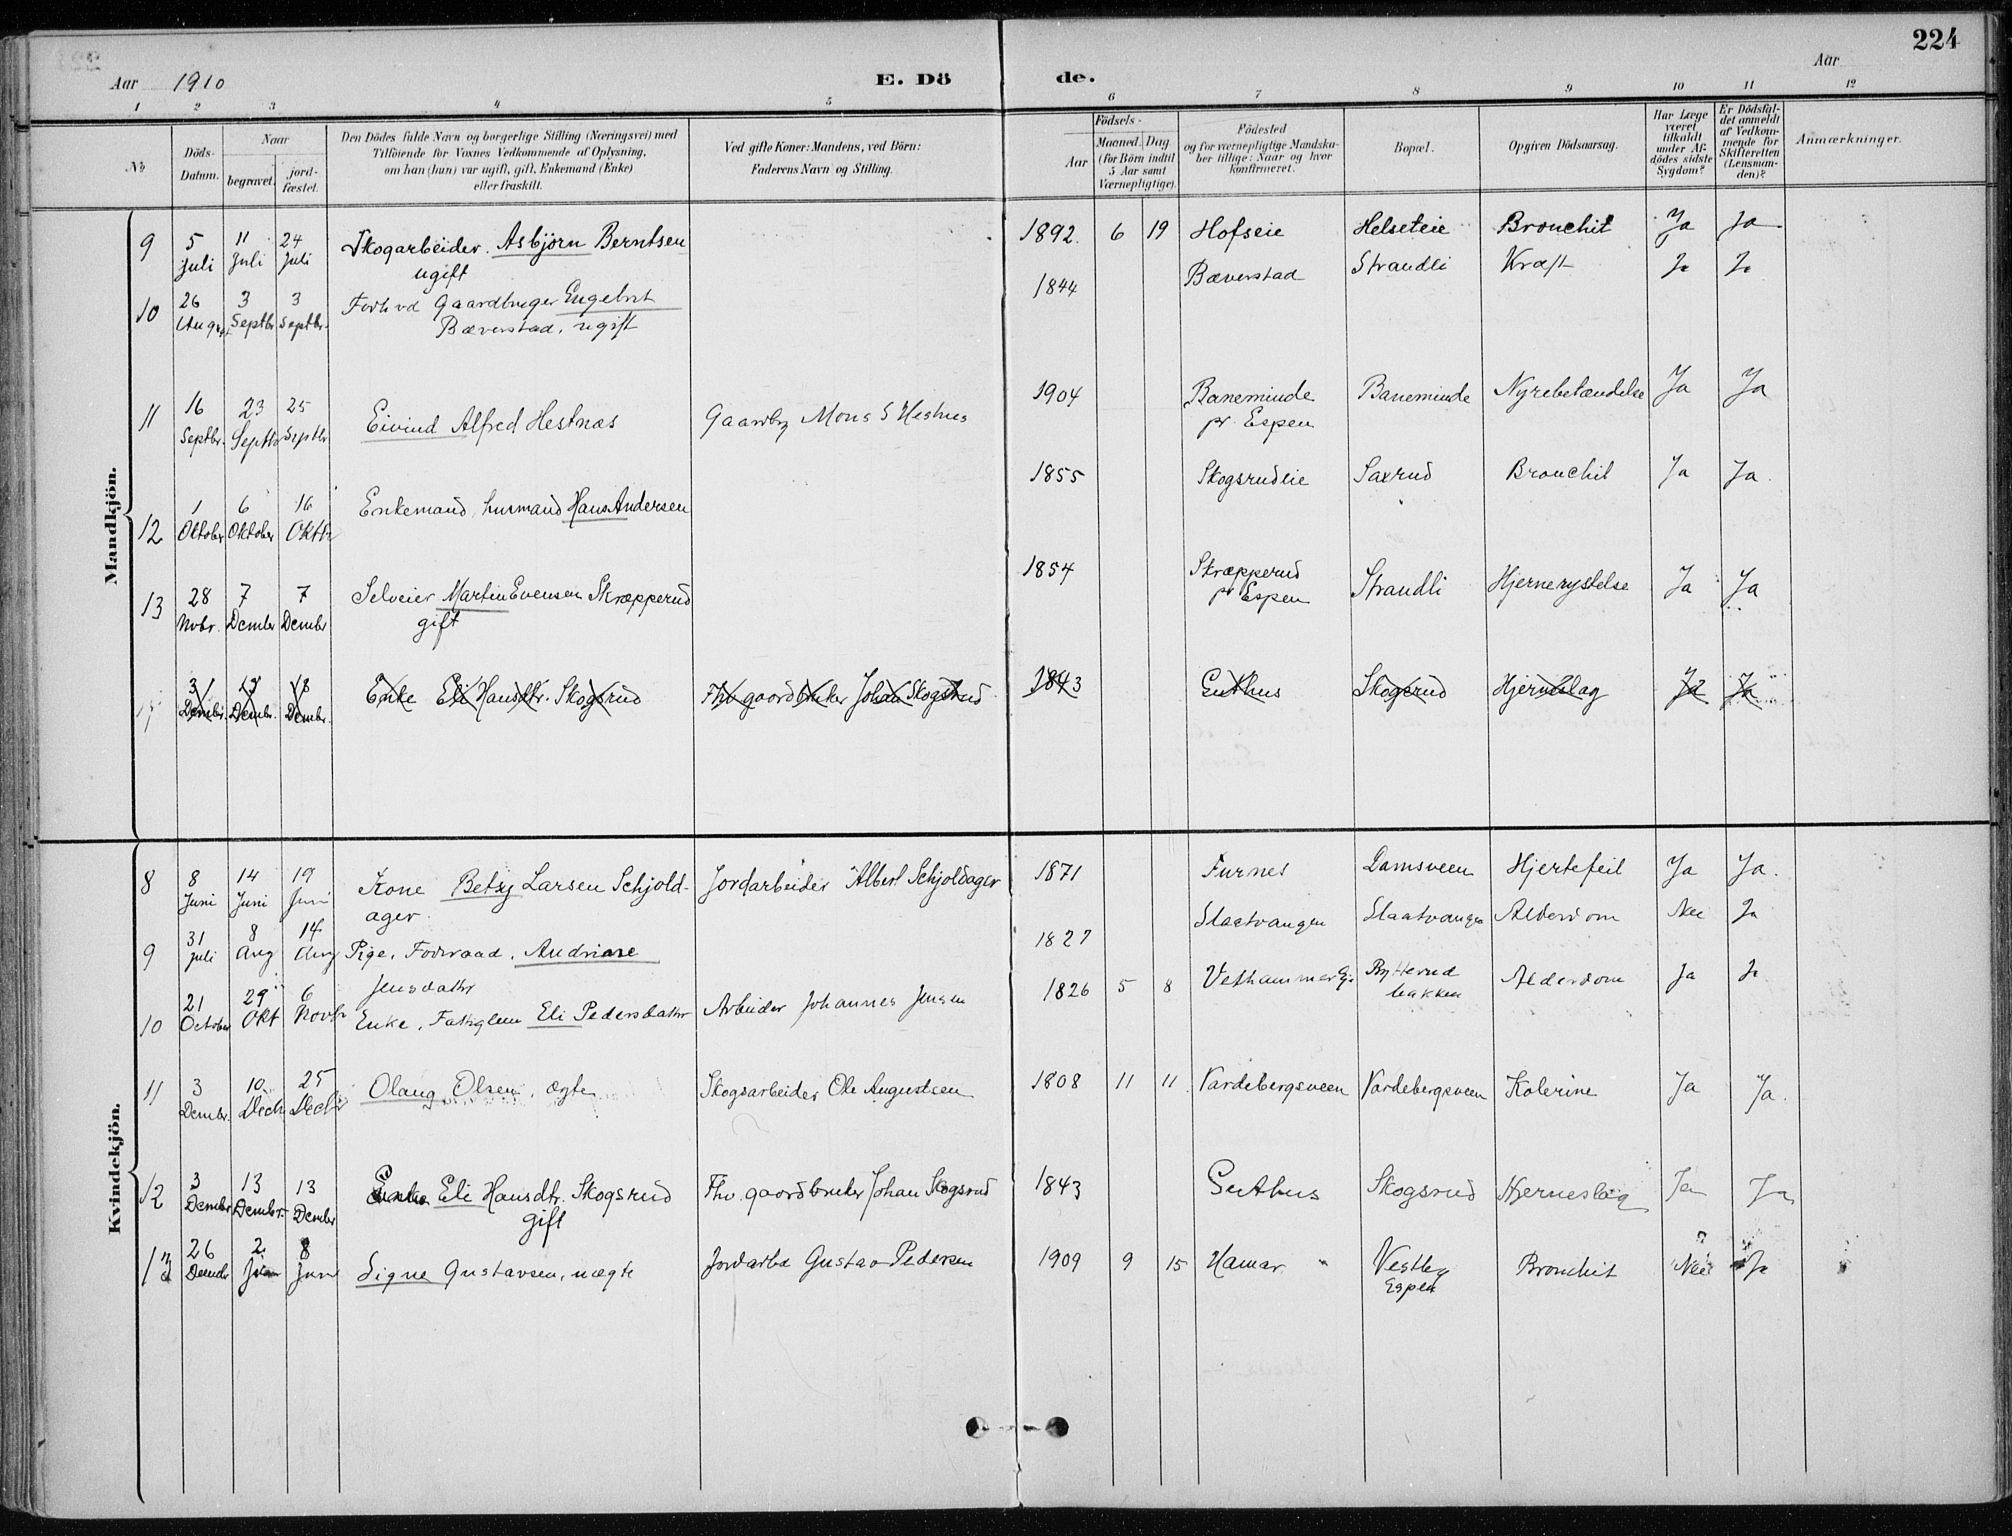 224
Aar 1910
E. Dö de.
Aar
1 2 3 4 5 6 7 8 9 10 11 12
No
Döds-Datum.
Naar
begravet.
jord-fæstet.
Den Dödes fulde Navn og borgerlige Stilling (Næringsvei) med
Tilföiende for Voxnes Vedkommende af Oplysning,
om han (hun) var ugift, gift, Enkemand (Enke)
eller fraskilt.
Ved gifte Koner: Mandens, ved Börn:
Faderens Navn og Stilling.
Födsels-
Aar
Maaned. Dag
(for Börn indtil
5 Aar samt
Værnepligtige).
Födested
og for værnepligtige Mandska-
ber tillige: Naar og hvor
konfirmeret.
Bopæl.
Opgiven Dödsaarsag.
Har Læge
været
tilkaldt
under Af-
dødes sidste
Sygdom?
Er Dödsfal-
det anmeldt
af Vedkom-
mende for
Skifteretten
(Lensman-
den)?
Anmærkninger.
Mandkjön.
9 5 Juli 11 Juli 24 Juli Skogarbeider. Asbjörn Berntsen 1892. 6 19 Hofseie Helseteie Bronchit Ja Ja
ugift
10 26 August 3 Septbr 3 Septbr. Forh vd Gaardbruger Engebret 1844 Bæverstad Strandli Kræft Ja Ja
Bæverstad, ugift
11 16 Septbr. 23 Septbr 25 Septbr Eivind Alfred Hestnæs Gaardbr Mons S Hestnes 1904 Baneminde Baneminde Nyrebetændelse Ja Ja
pr. Espen
12 1 Oktober 6 Oktober 16 Oktbr Enkemand, husmand Hans Andersen 1855 Skogsrudeie Saxrud Bronchit Ja Ja.
13 28 Novbr. 7 Dember 7 Dember Selveier Martin Evensen Skræpperud 1854 Skræpperud Strandli Hjernerystelse Ja Ja
gift pr Espen
3 Dembr. 13 Dembr. 13 Dembr. Enke Eli Hansdtr. Skogsrud Fhv. gaardbruker Johan Skogsrud 1843 Guthus Skogsrud Hjerneslag Ja Ja
Kvindekjön.
8 8 Juni 14 Juni 19 Juni Kone Betzy Larsen Schjold- Jordarbeider Albert Schjoldager 1871 Furnes Damsveen Hjertefeil Ja Ja.
ager.
9 31 Juli 8 Aug 14 Aug Pige, Foderaad, Andriane 1827 Slaatvangen Slaatvangen Alderdom Nei Ja
Jensdatter
10 21 October 29 Okt 6 Novbr Enke, Fattiglem Eli Pedersdatter Arbeider Johannes Jensen 1826 5 8 Vethammer Rytterud Alderdom Ja Ja
bakken
11 3 Dembr. 10 Decbr 25 Decbr Olaug Olsen, ægte Skogsarbeider Ole Augustsen 1808 11 11 Vardebergsveen Vardebergsveen Kolerine Ja Ja.
12 3 Dember 13 Dembr. 13 Dember Enke Eli Hansdtr. Skogsrud Fhv. gaardbruker Johan Skogsrud 1843 Guthus Skogsrud Hjerneslag Ja Ja
gift
13 26 Decmbr 2. Jan 8 Jan Signe Gustavsen, uægte Jordarbd Gustav Pedersen 1909 9 15 Hamar Vestby Bronchit Nei Ja
Espen